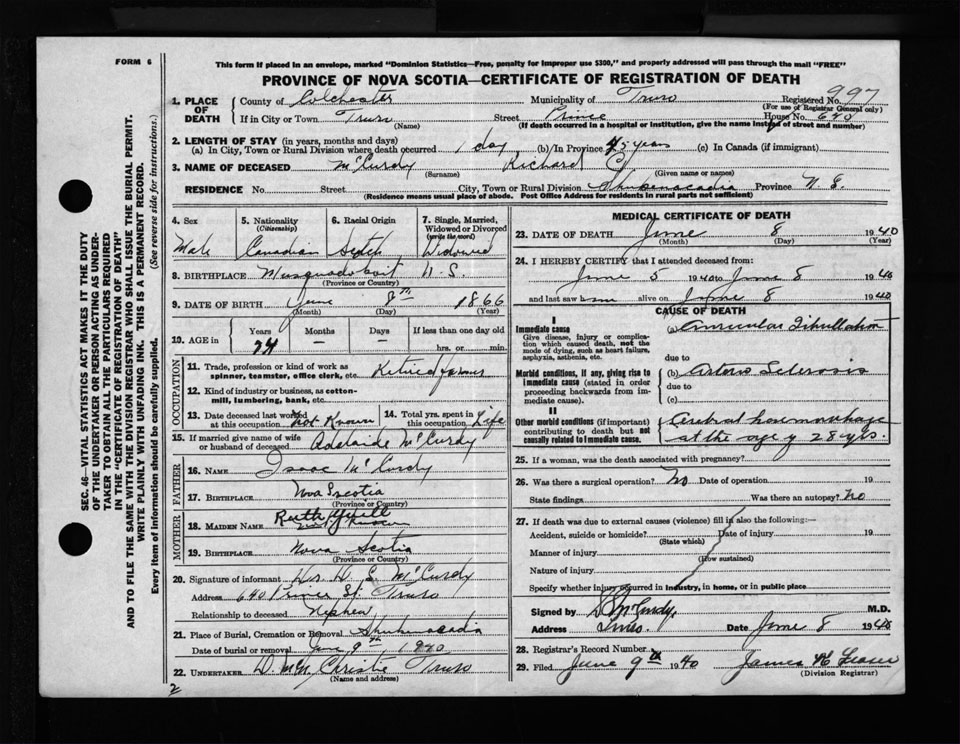 FORM 6
This form if placed in an envelope, marked "Dominion Statistics—Free, penalty for improper use $300," and properly addressed will pass through the mail "FREE"
PROVINCE OF NOVA SCOTIA—CERTIFICATE OF REGISTRATION OF DEATH
SEC. 46—VITAL STATISTICS ACT MAKES IT THE DUTY
OF THE UNDERTAKER OR PERSON ACTING AS UNDER-
TAKER TO OBTAIN ALL THE PARTICULARS REQUIRED
IN THE "CERTIFICATE OF REGISTRATION OF DEATH"
AND TO FILE THE SAME WITH THE DIVISION REGISTRAR WHO SHALL ISSUE THE BURIAL PERMIT.
WRITE PLAINLY WITH UNFADING INK. THIS IS A PERMANENT RECORD.
Every item of Information should be carefully supplied. (See reverse side for instructions.)
1. PLACE OF DEATH County of Colchester Municipality of Truro Registered No. 997
(For use of Registrar General only)
If in City or Town Truro Street Prince House No. 640
(Name) (If death occurred in a hospital or institution, give the name instead of street and number)
2. LENGTH OF STAY (in years, months and days)
(a) In City, Town or Rural Division where death occurred 1 day (b) In Province years (c) In Canada (if immigrant)
3. NAME OF DECEASED McCurdy Richard C
(Surname) (Given name or names)
RESIDENCE No. Street City, Town or Rural Division Shubenacadia Province N. S.
(Residence means usual place of abode. Post Office Address for residents in rural parts not sufficient)
4. Sex 5. Nationality 6. Racial Origin 7. Single, Married,
(Citizenship) Widowed or Divorced
(write the word)
Male Canadian Scotch Widowed
8. BIRTHPLACE Musquodoboit N. S.
(Province or Country)
9. DATE OF BIRTH June 8th 1866
(Month) (Day) (Year)
10. AGE in Years Months Days If less than one day old
74 — — hrs. or min.
OCCUPATION
11. Trade, profession or kind of work as
spinner, teamster, office clerk, etc. Retired farmer
12. Kind of industry or business, as cotton-
mill, lumbering, bank, etc.
13. Date deceased last worked
at this occupation not Known
14. Total yrs. spent in
this occupation Life
15. If married give name of wife
or husband of deceased Adelaide McCurdy
FATHER
16. NAME Isaac McCurdy
17. BIRTHPLACE Nova Scotia
(Province or Country)
MOTHER
18. MAIDEN NAME Ruth
19. BIRTHPLACE Nova Scotia
(Province or Country)
20. Signature of informant H. S. McCurdy
Address 640 Prince St. Truro
Relationship to deceased Nephew
21. Place of Burial, Cremation or Removal Shubenacadia
Date of burial or removal June 9th, 1940
22. UNDERTAKER Christie Truro
(Name and address)
2
MEDICAL CERTIFICATE OF DEATH
23. DATE OF DEATH June 8 1940
(Month) (Day) (Year)
24. I HEREBY CERTIFY that I attended deceased from:
June 5 1940 to June 8 1940
and last saw him alive on June 8 1940
CAUSE OF DEATH
I
Immediate cause
Give disease, injury or complica-
tion which caused death, not the
mode of dying, such as heart failure,
asphyxia, asthenia, etc.
(a) auricular fibrillation
due to
Morbid conditions, if any, giving rise to
immediate cause (stated in order
proceeding backwards from im-
mediate cause).
(b) arterio Sclerosis
due to
(c)
II
Other morbid conditions (if important)
contributing to death but not
causally related to immediate cause.
Cerebral haemorrhage
at the age of 28 yrs.
25. If a woman, was the death associated with pregnancy?
26. Was there a surgical operation? No Date of operation 19
State findings Was there an autopsy? No
27. If death was due to external causes (violence) fill in also the following:—
Accident, suicide or homicide? Date of injury 19
(State which)
Manner of injury
(How sustained)
Nature of injury
Specify whether injury occurred in industry, in home, or in public place
Signed by McCurdy M.D.
Address Truro. Date June 8 1940
28. Registrar's Record Number
29. Filed June 9th 1940 James H
(Division Registrar)